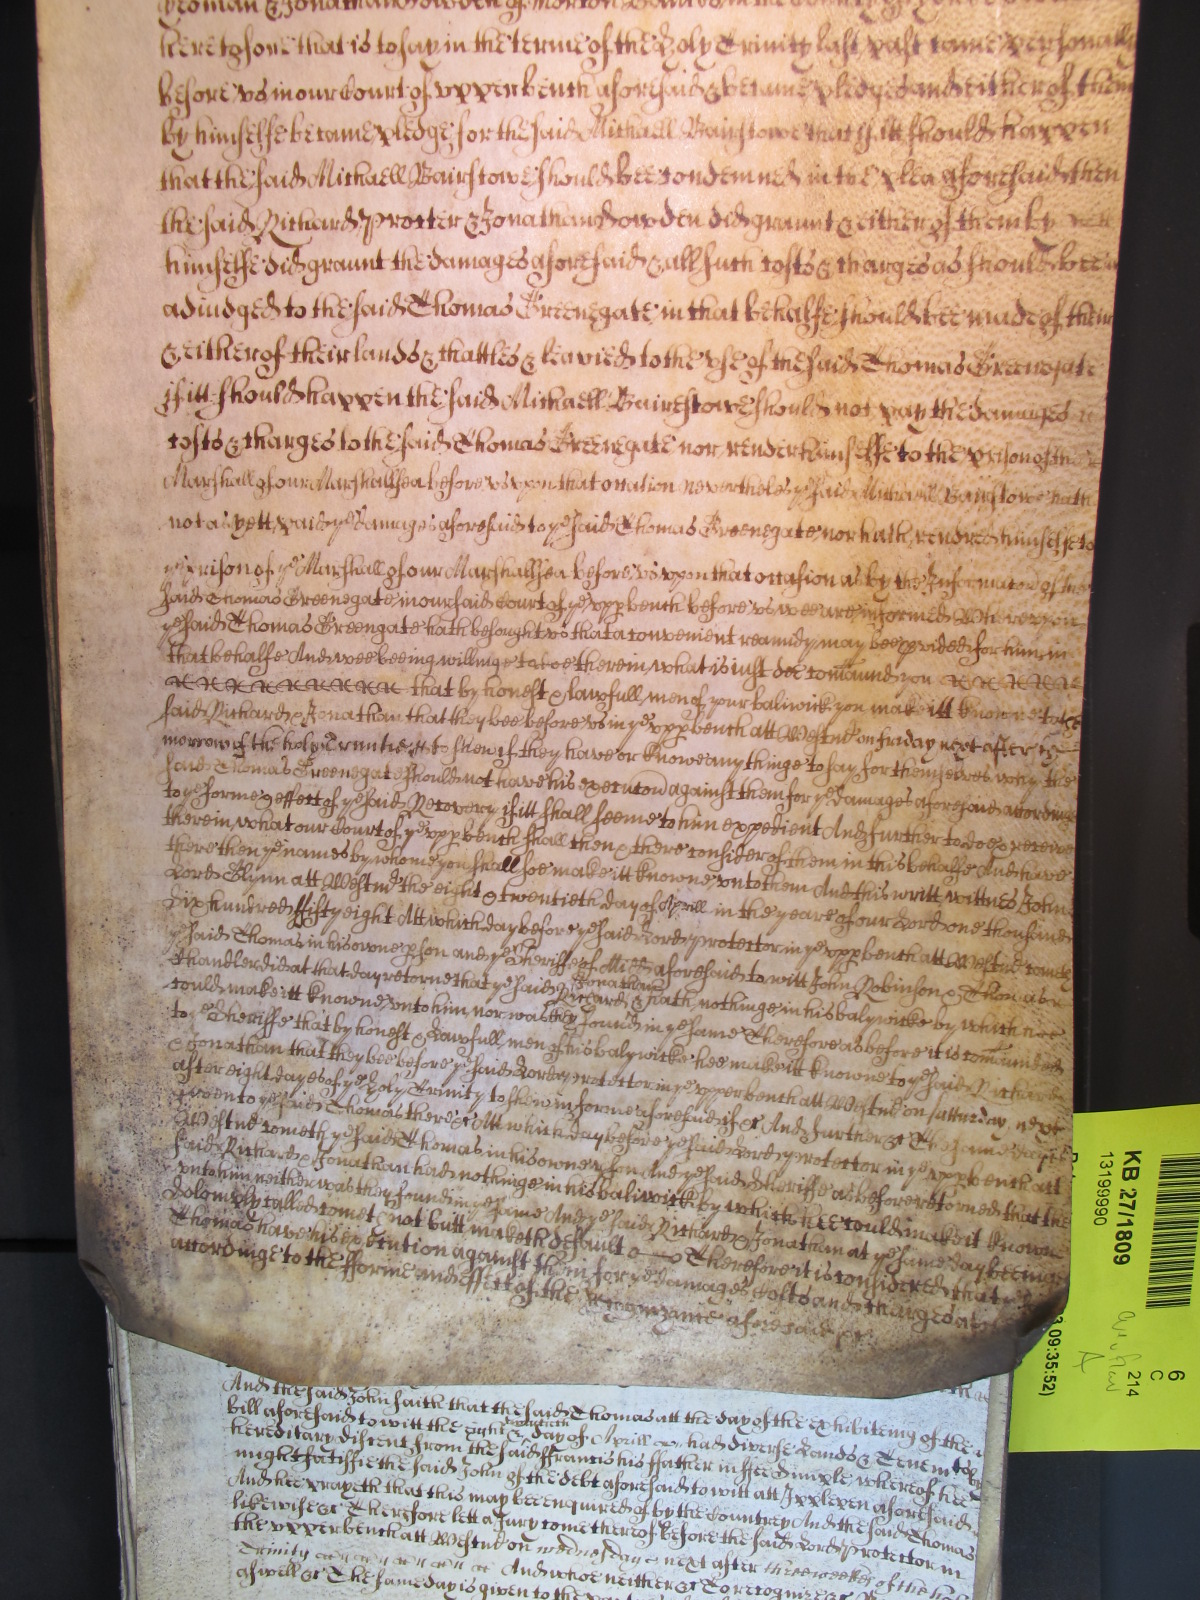 yeoman & Jonathan Dowden of Morton Bankes in the County of
heretofore that is to say in the terme of the Holy Trinity last past came personally
before us in our Court of upper bench aforesaid & became pledges and either of them
by himselfe became pledge for the said Michaell Bairstowe that if itt should happen
that the said Michaell Bairstowe should bee condemned in the plea aforesaid then
the said Richard Procter & Jonathan Dowden did graunt & either of them by
himselfe did graunt the damages aforesaid & all such costs & charges as should bee
adiudged to the said Thomas Greenegate in that behalfe should bee made of their
& either of their lands & chattles & leavied to the use of the said Thomas Greenegate
if itt should happen the said Michaell Bairestowe should not pay the damages
costs & charges to the said Thomas Greenegate nor render himselfe to the prison of the
Marshall of our Marshallsea before us upon that occasion neverthelesse ye said Michaell Bairstowe hath
not as yett paid ye damages aforesaid to ye said Thomas Greenegate nor hath rendred himselfe to
ye prison of ye Marshall of our Marshallsea before us upon that occasion as by the Informacon of the
said Thomas Greenegate in our said Court of ye upp bench before us wee are informed Whereupon
ye said Thomas Greengate hath besought us that a convenient reamidy may bee pvided for him in
that behalfe And wee beeing willinge to doe therein what is iust doe comaund you
that by honest & lawfull men of your baliwick you make itt knowne to the
said Richard & Jonathan that they bee before us in ye upp bench att Westmr on friday next after ye
morrow of the holy Trinitie to shew if they have or knowe any thinge to say for themselves why the
said Thomas Greenegate should not have his execucon against them for ye damages aforesaid accordinge
to ye forme & effect of ye said Recovery if itt shall seeme to him expedient And further to doe & receive
therein what our Court of ye upp bench shall then & there consider of them in this behalfe And have
there then ye names by whome you shall soe make itt knowne unto them And this writt wittnes John
Lord Glynn att Westmr the eight & twentieth day of Aprill in the yeare of our Lord one thousand
six hundred fifty eight Att which day before ye said Lord protector in ye upp bench att Westmr comes
ye said Thomas in his owne pson and ye Sheriffe of Midd aforesaid to witt John Robinson & Thomas
Chandler did att that day retorne that ye said Richard & Jonathan hath nothinge in his balywicke by which hee
could make itt knowne unto him nor was they found in ye same Therefore as before it is comaunded
to ye Sheriffe that by honest & Lawfull men of his balywicke hee make itt knowne to ye said Richard
& Jonathan that they bee before ye said Lord protector in ye upper bench att Westmr on satturday next
after eight dayes of ye holy Trinity to shew in forme aforesaid if &c And further &c The same day is
given to ye said Thomas there &c Att which day before ye said Lord protector in ye upp bench att
Westmr cometh ye said Thomas in his owne pson And ye said Sheriffe as before retorned that the
said Richard & Jonathan had nothinge in his baliwick by which hee could make it knowne
unto him neither was they found in ye same And ye said Richard & Jonathan at ye same day beeinge
Solomply called cometh not butt maketh default Therefore it is considered that ye
Thomas have his execution against them for ye damages costs and charges
accordinge to the fforme and effect of the Recognizance aforesaid &c
And the said John saith that the said Thomas att the day of the exhibiteing of the
bill aforesaid to witt the eight & twentieth day of Aprill had diverse Lands & Tenemts by
hereditary discent from the said ffrancis his ffather in ffee Simple whereof hee
might satisfie the said John of the debt aforesaid to witt att Ipplepen aforesaid
And hee prayeth that this may bee enquired of by the Countrey And the said Thomas
likewise &c Therefore lett a Jury come thereof before the said Lord Protector in
the upper bench att Westmr on wednesday next after three weekes of the holy
Trinity And who neither &c To recognize &c
as well &c The same day is given to the
KB 27/1809
13199990
6
C
214
09:35:52)